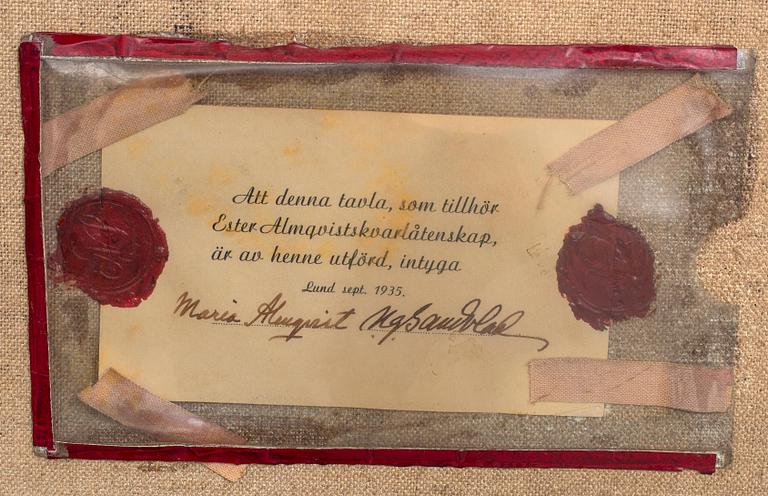 Att denna tavla, som tillhör
Ester Almqvistskvarlåtenskap,
är av henne utförd, intyga
Lund sept. 1935.
Maria Almqvist